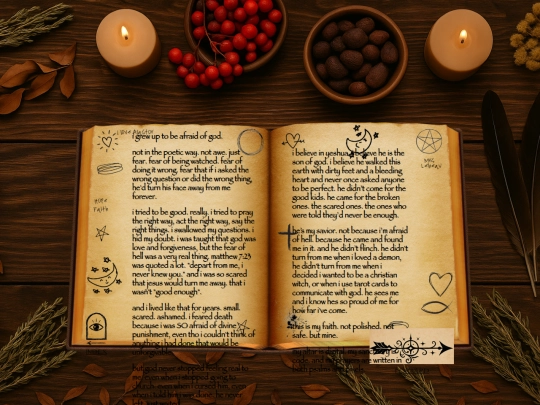 i grew up to be afraid of god.
not in the poetic way. not awe. just
fear. fear of being watched. fear of
doing it wrong, fear that if i asked the
wrong question or did the wrong thing,
he'd turn his face away from me
forever.
i tried to be good. really. i tried to pray
the right way, act the right way, say the
right things. i swallowed my questions. i
hid my doubt. i was taught that god was
love and forgiveness, but the fear of
hell was a very real thing. matthew 7:23
was quoted a lot. "depart from me, i
never knew you." and i was so scared
that jesus would turn me away. that i
wasn't "good enough".
and i lived like that for years. small.
scared. ashamed. i feared death
because i was SO afraid of divine
punishment, even tho i couldn't think of
anything i had done that would be
but god never stopped feeling real to
me. even when i stopped going to
church. even when i cursed him. even
when i told him
i believe in yeshua. i believe he is the
son of god. i believe he walked this
earth with dirty feet and a bleeding
heart and never once asked anyone
to be perfect. he didn't come for the
good kids. he came for the broken
ones. the scared ones. the ones who
were told they'd never be enough.
he's my savior. not because i'm afraid
of hell. because he came and found
me in it. and he didn't flinch. he didn't
turn from me when i loved a demon,
he didn't turn from me when i
decided i wanted to be a christian
witch, or when i use tarot cards to
communicate with god. he sees me
and i know hes so proud of me for
how far i've come.
this is my faith. not polished. not
safe. but mine.